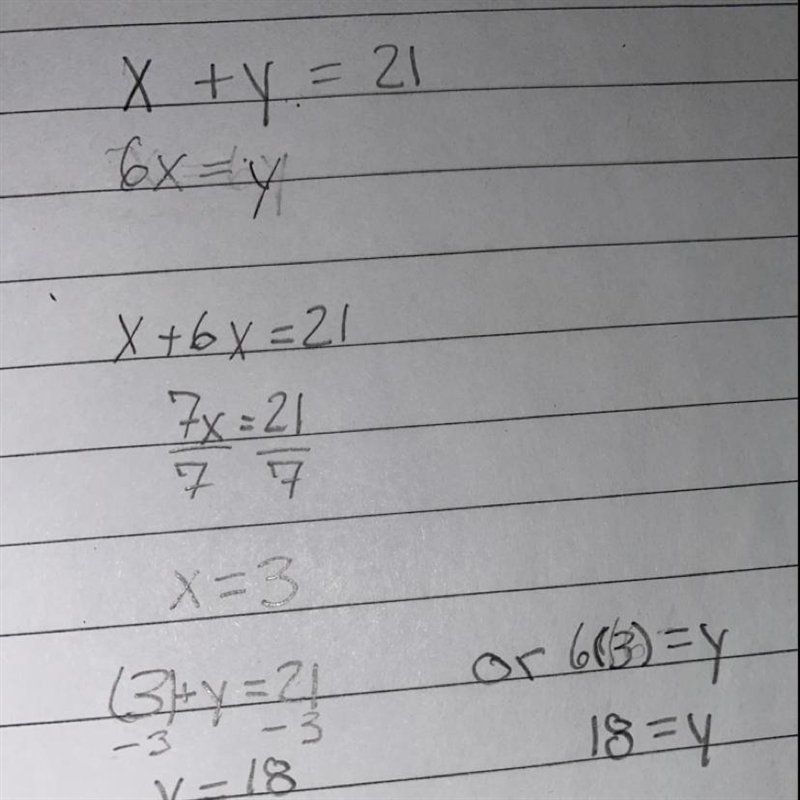 x + y = 21
6x = y
x + 6x = 21
7x = 21
7 7
x = 3
(3) + y = 21
-3 -3
y = 18
or 6(3) = y
18 = y